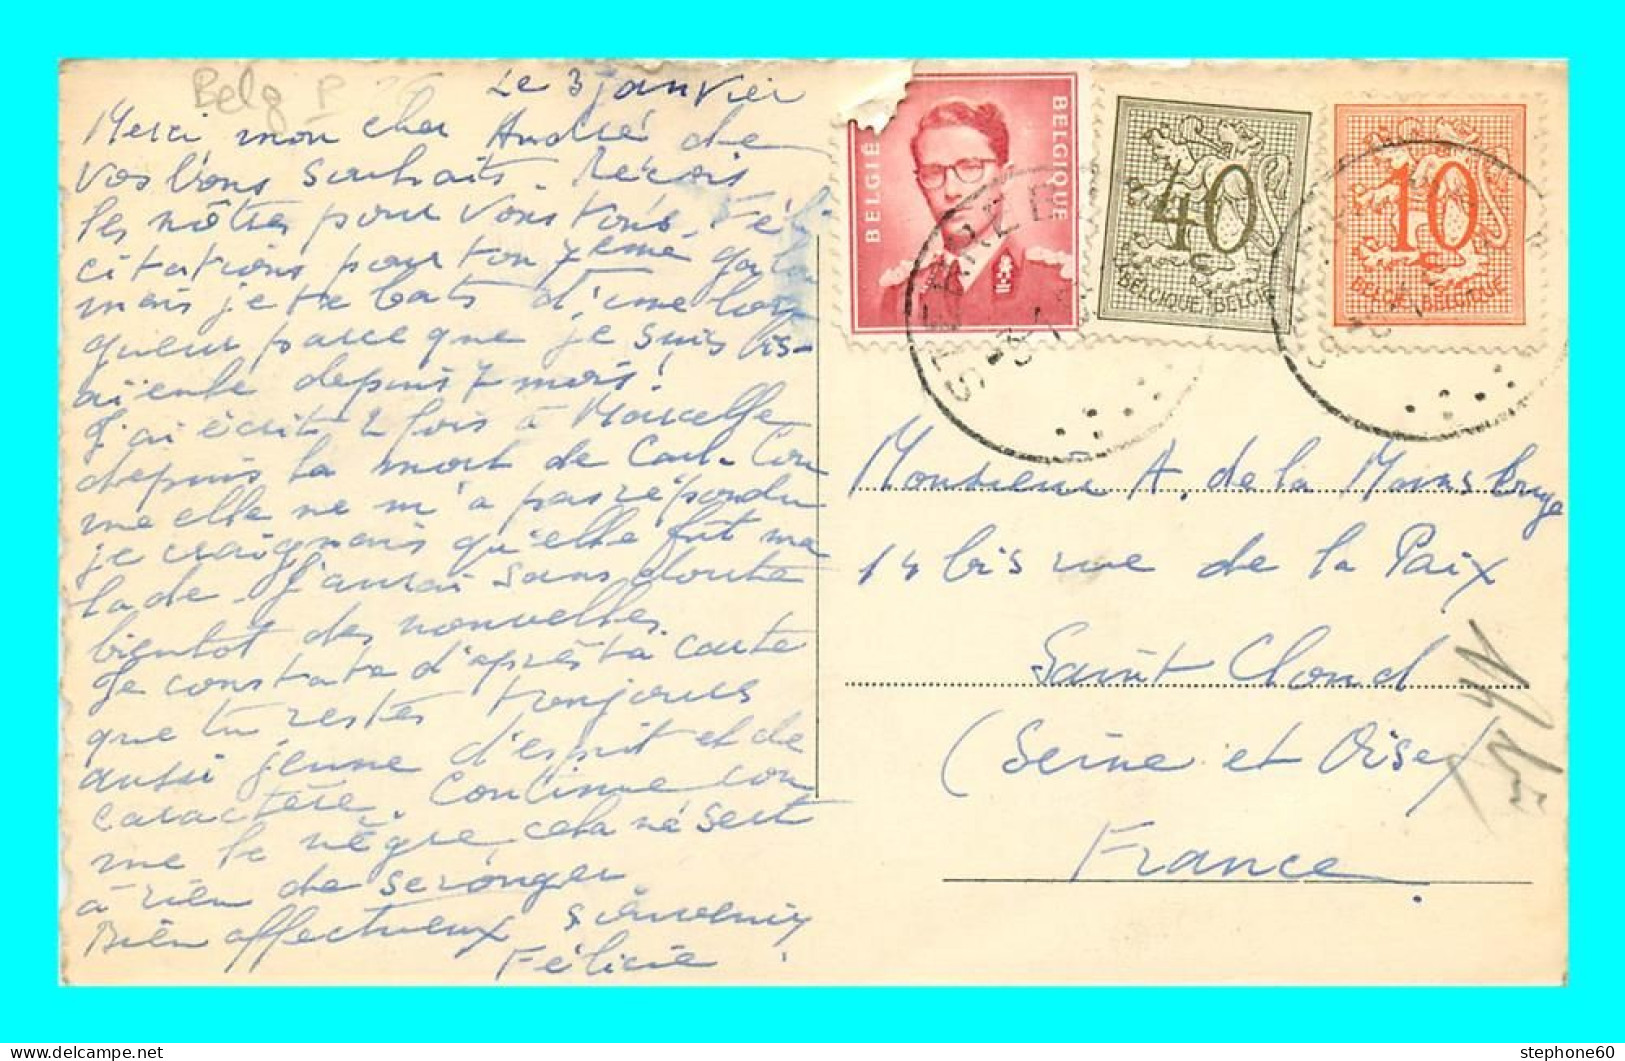 Belg P
Le 3 janvier
Merci mon cher André de
vos bons souhaits. Reçois
les nôtres pour vous tous. Féli
citations pour ton 7eme gala
mais je te bats d'une lon
gueur parce que je suis bis-
aïeule depuis 7 mois!
J'ai écrit 2 fois à Marcelle
depuis la mort de Carl. Com
me elle ne m'a pas répondu
je craignais qu'elle fut ma
lade. J'aurai sans doute
bientot des nouvelles.
Je constate d'après ta carte
que tu restes toujours
aussi jeune d'esprit et de
caractère. Continue com
me le nègre, cela ne sert
à rien de se ronger
Bien affectueux souvenir
Félicie !
BELGIË
BELGIQUE
40
BELGIQUE BELGIË
10
BELGIË BELGIQUE
Monsieur A. de la
14 bis rue de la Paix
Saint Cloud
(Seine et Oise)
France.
stephone60